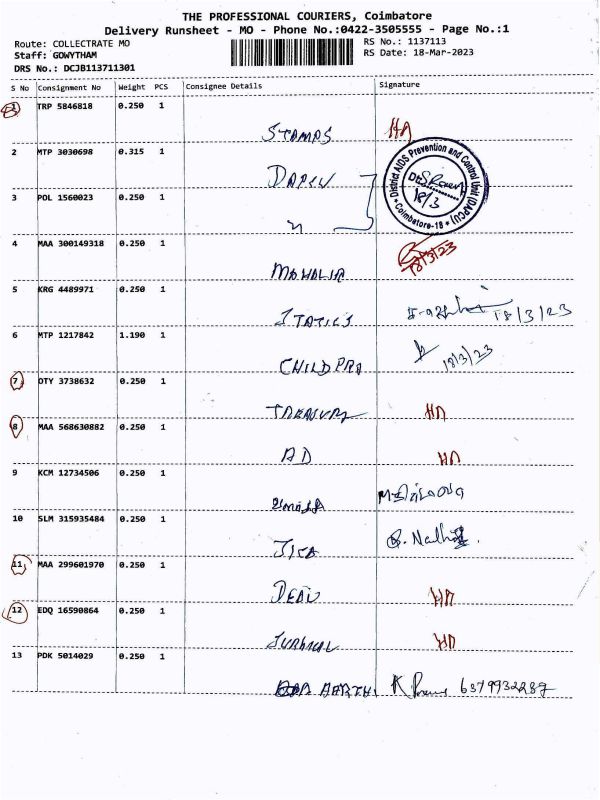 THE PROFESSIONAL COURIERS, Coimbatore
Delivery Runsheet - MO - Phone No.:0422-3505555 - Page No.:1
Route: COLLECTRATE MO
RS No.: 1137113
Staff: GOWYTHAM
RS Date: 18-Mar-2023
DRS No.: DCJB113711301
S No Consignment No Weight PCS Consignee Details Signature
1 TRP 5846818 0.250 1
STAMPS HA
2 MTP 3030698 0.315 1
District AIDS Prevention and Control Unit (DAPCU)
Coimbatore-18
18/3
3 POL 1560023 0.250 1
4 MAA 300149318 0.250 1
18/3/23
5 KRG 4489971 0.250 1
18/3/23
6 MTP 1217842 1.190 1
CHILD PRO 18/3/23
7 OTY 3738632 0.250 1
TREASURY HA
8 MAA 568630882 0.250 1
AD HA
9 KCM 12734506 0.250 1
10 SLM 315935484 0.250 1
11 MAA 299601970 0.250 1
DEAN HA
12 EDQ 16590864 0.250 1
HA
13 PDK 5014029 0.250 1
AARTHI K 6379932287